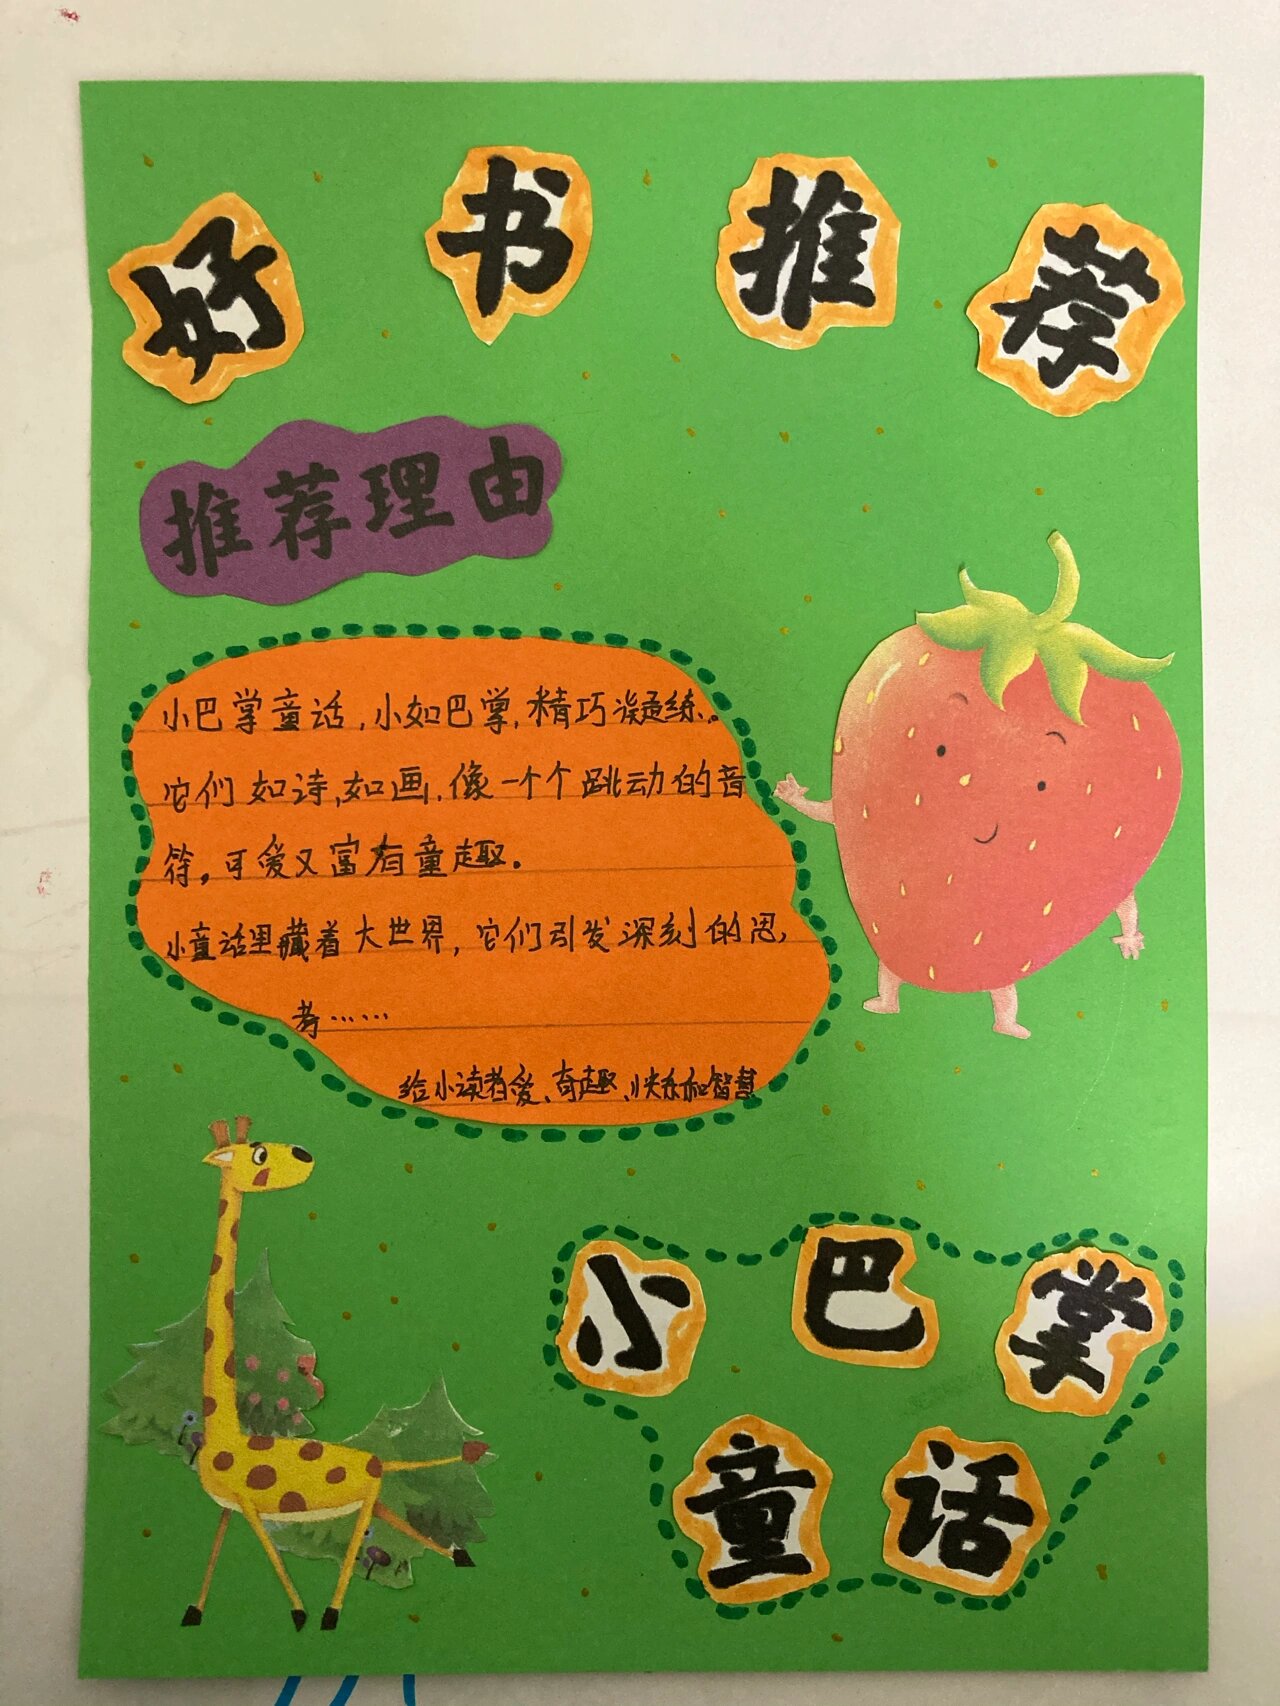 好书推荐
推荐理由
小巴掌童话,小如巴掌,精巧凝练。
它们如诗,如画,像一个个跳动的音
符。可爱又富有童趣。
小童话里藏着大世界,它们引发深刻的思
考……
给小读者爱、奇趣、快乐和智慧
小巴掌
童话